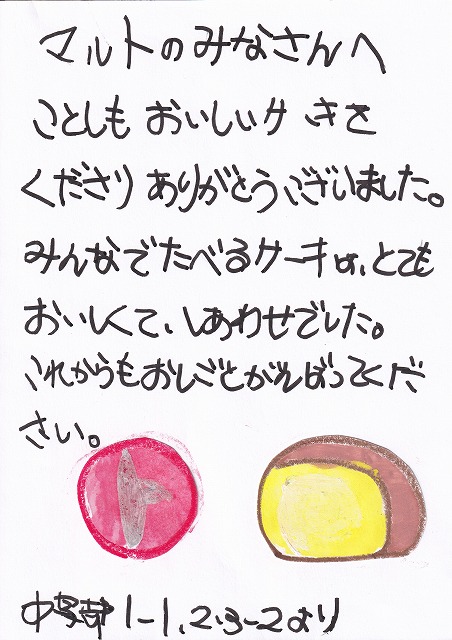 マルトのみなさんへ
ことしも おいしいケ きを
くださり ありがとうございました。
みんなでたべるケーキは、とても
おいしくて、しあわせでした。
これからもおしごとがんばってくだ
さい。
ト
中学部 1-1、2・3-2より